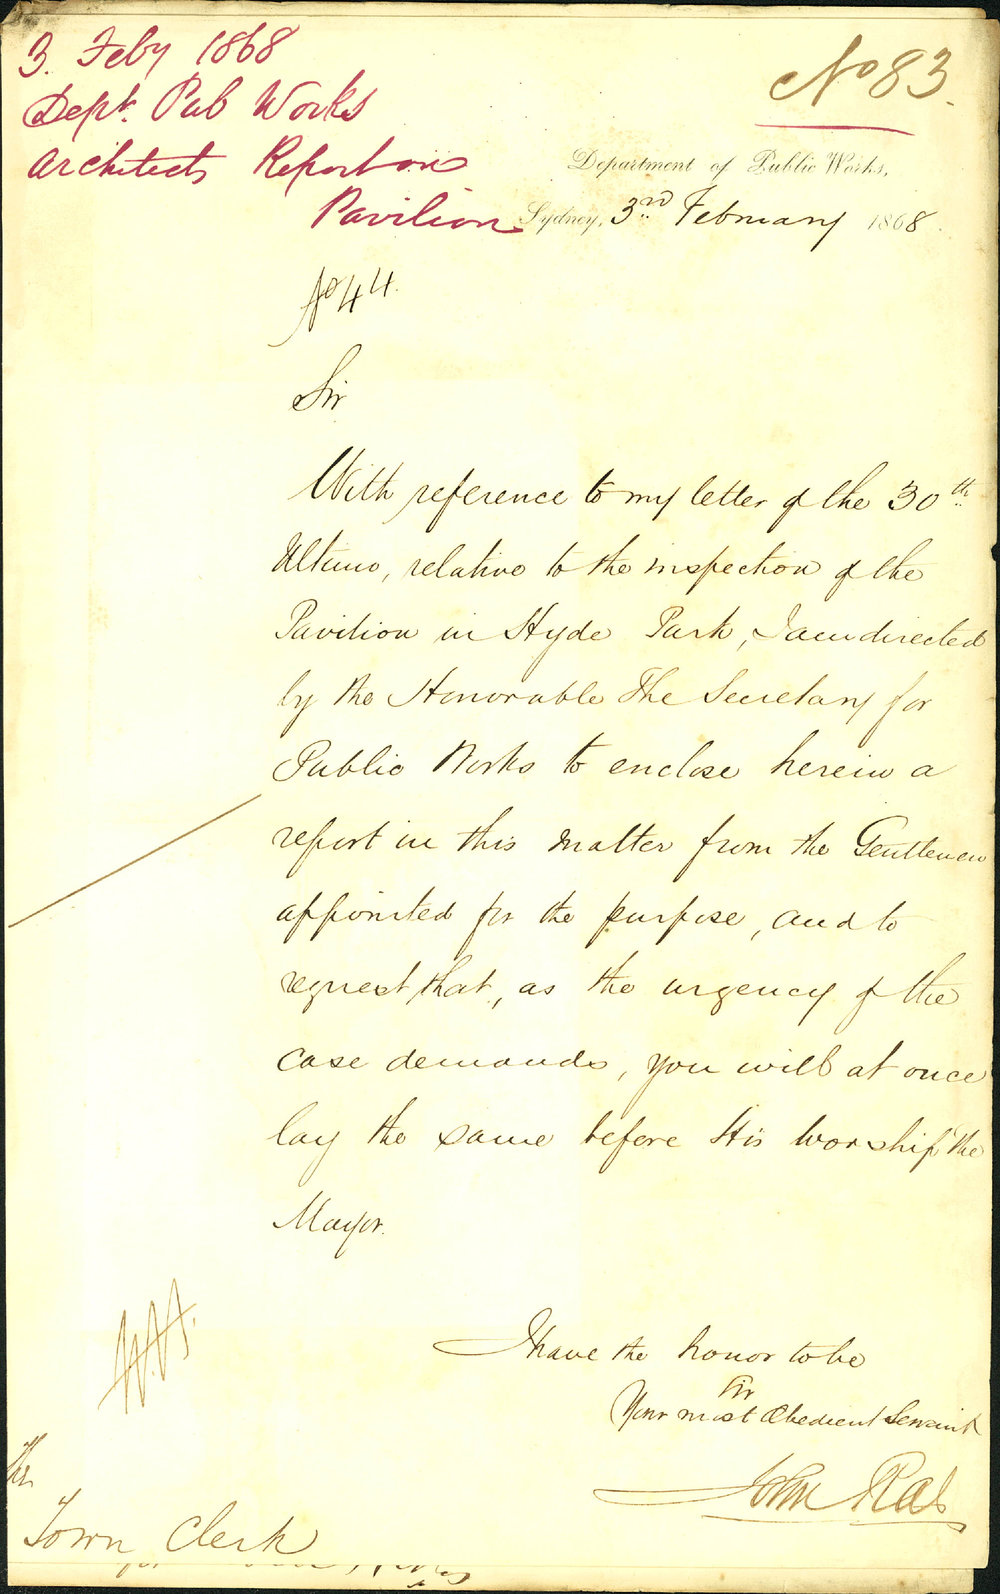 3. Feby 1868
Dept. Pub Works
Architects Report on
Pavilion
No 83.
Department of Public Works,
Sydney, 3rd February 1868.
No 44.
Sir
With reference to my letter of the 30th
Ultimo, relative to the inspection of the
Pavilion in Hyde Park, I am directed
by the Honorable The Secretary for
Public Works to enclose herein a
report in this matter from the Gentlemen
appointed for the purpose, and to
request that, as the urgency of the
case demands, you will at once
lay the same before His Worship the
Mayor.
I have the honor to be
Sir
Your most Obedient Servant
John Rae
The
Town Clerk